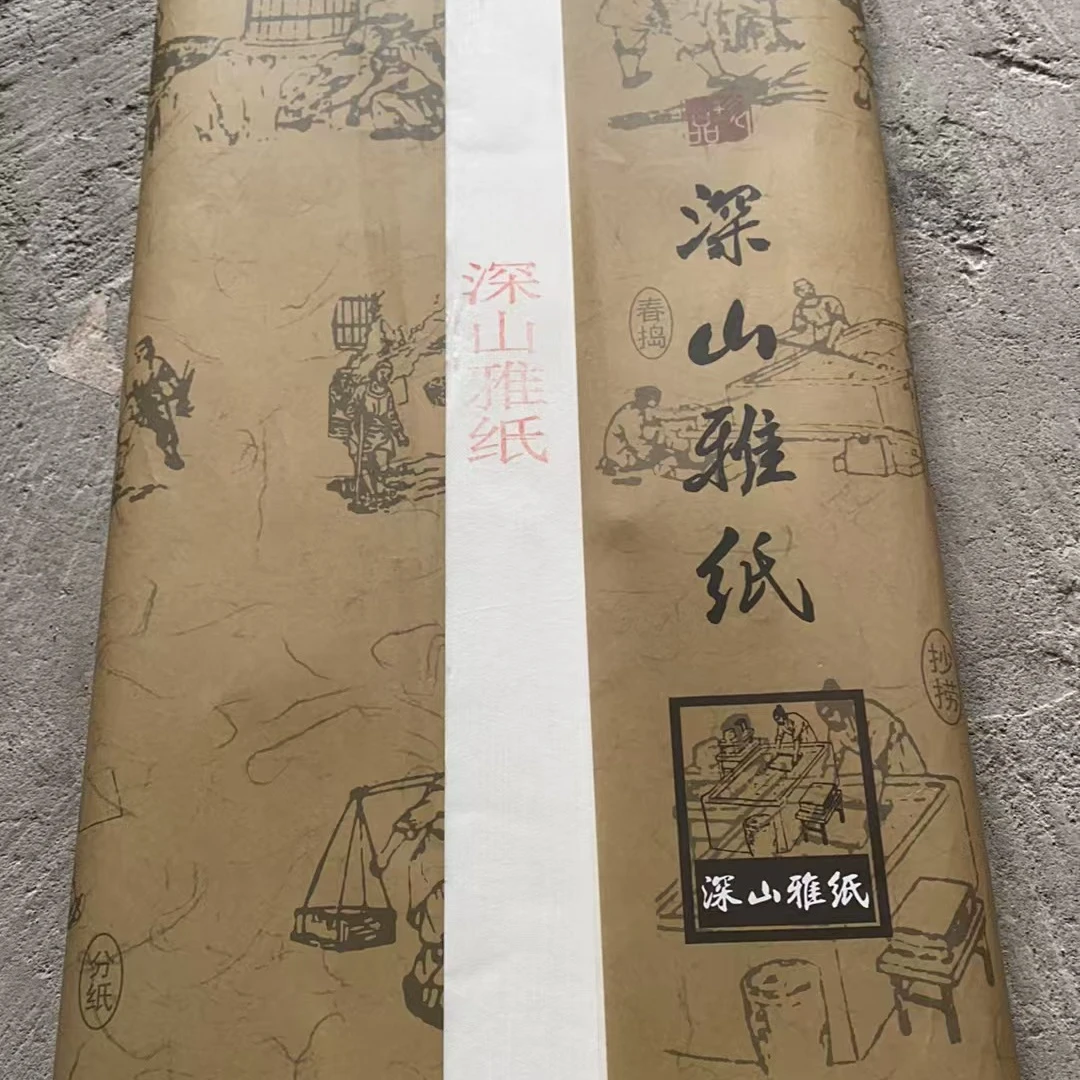 深山雅纸
珍品
深山雅纸
舂捣
抄捞
深山雅纸
分纸